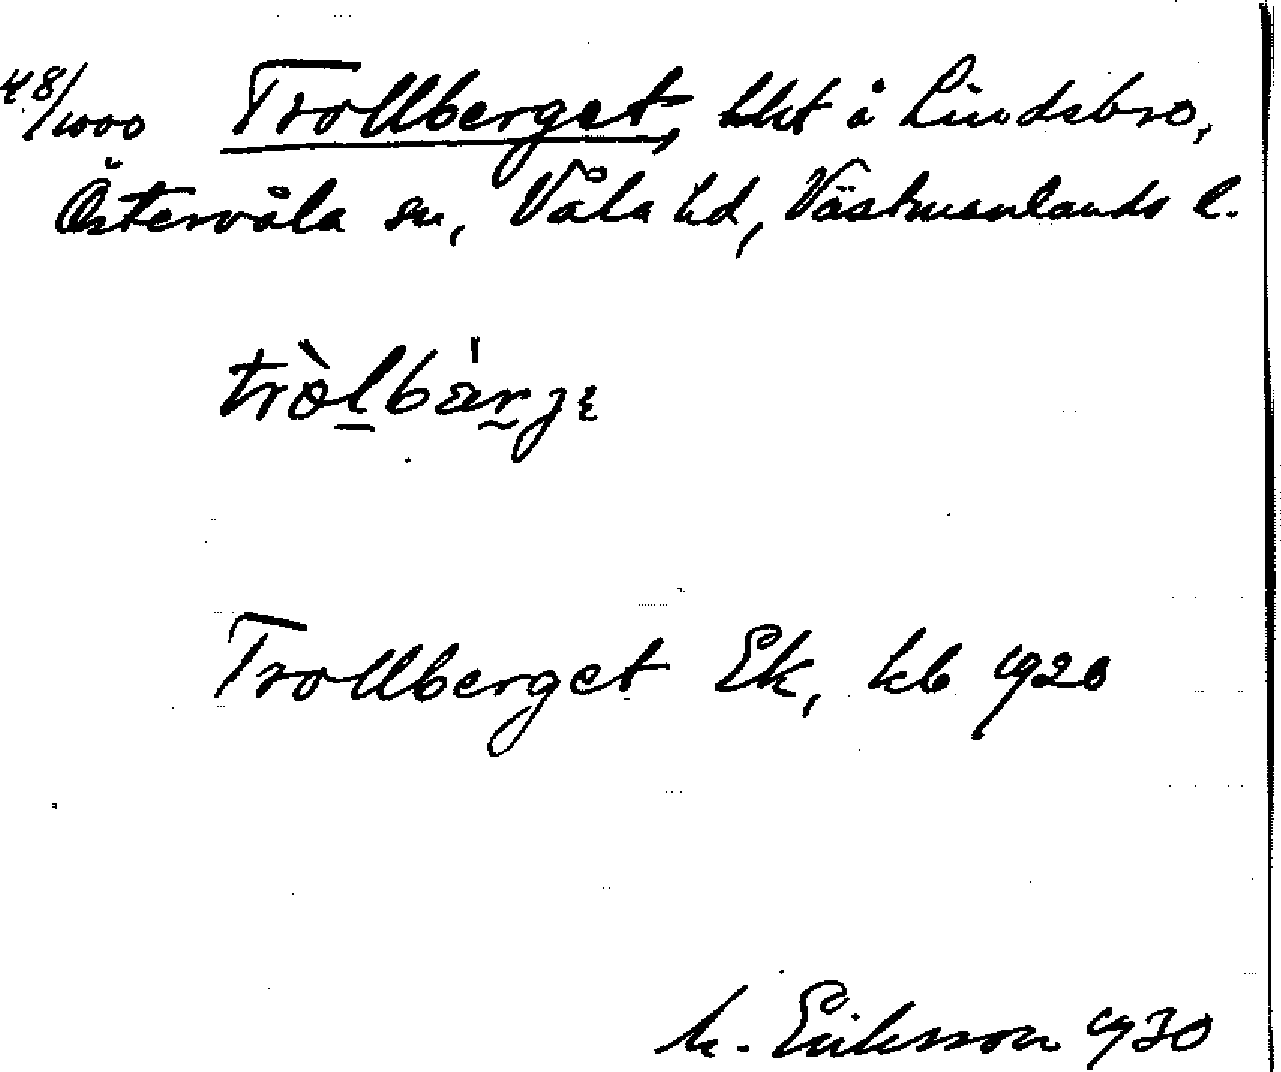 48/1000 Trollberget, lht å Lindsbro,
Östervåla sn, Våla hd, Västmanlands l.
tròlbärjε
Trollberget Ek, kb 1920
M. Eriksson 1930